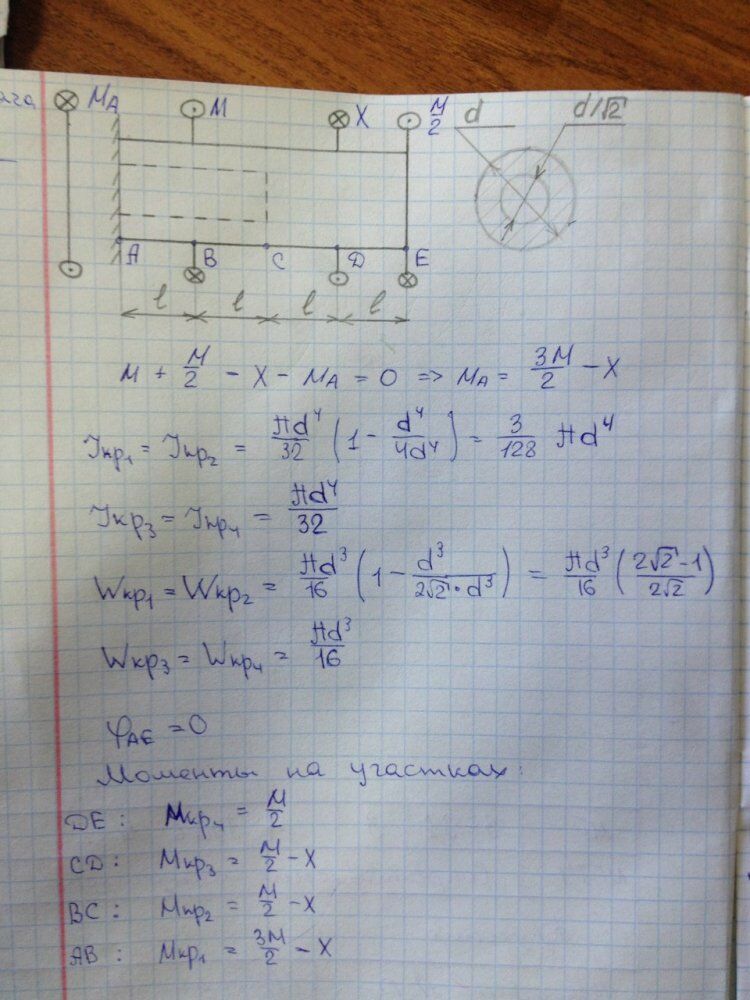 ага
M_A M X M/2 d d/√2
A B C D E
l l l l
M + M/2 - X - M_A = 0 => M_A = 3M/2 - X
Jкр₁ = Jкр₂ = πd⁴/32 (1 - d⁴/4d⁴) = 3/128 πd⁴
Jкр₃ = Jкр₄ = πd⁴/32
Wкр₁ = Wкр₂ = πd³/16 (1 - d³/2√2·d³) = πd³/16 (2√2-1/2√2)
Wкр₃ = Wкр₄ = πd³/16
φ_AE = 0
Моменты на участках:
DE: Mкр₄ = M/2
CD: Mкр₃ = M/2 - X
BC: Mкр₂ = M/2 - X
AB: Mкр₁ = 3M/2 - X